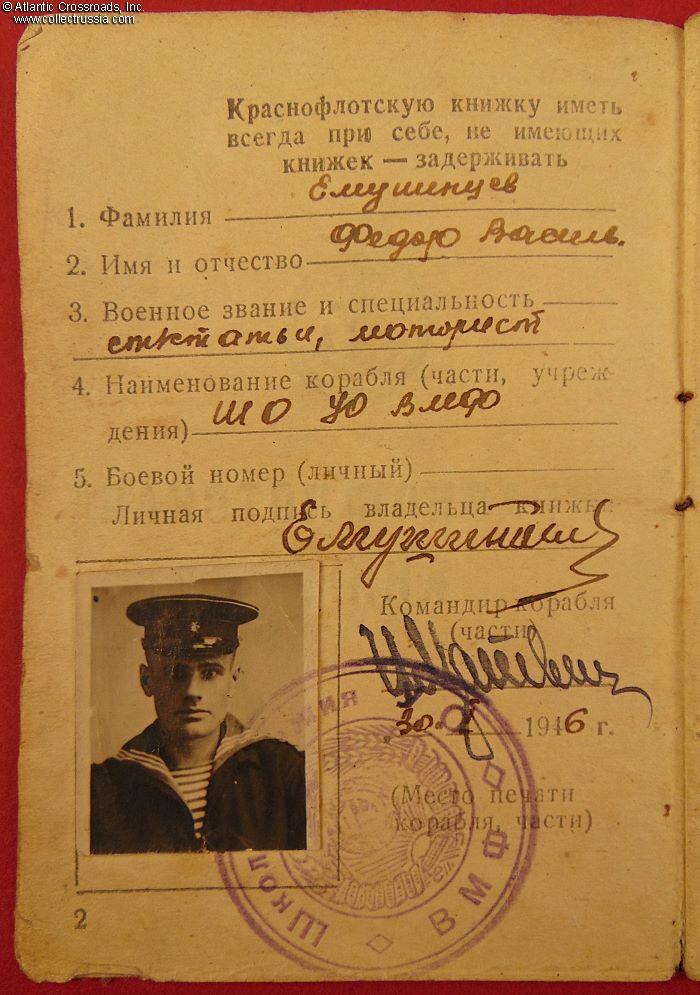 © Atlantic Crossroads, Inc.
www.collectrussia.com
Краснофлотскую книжку иметь
всегда при себе, не имеющих
книжек — задерживать
Емушинцев
1. Фамилия
Федор Василь.
2. Имя и отчество
3. Военное звание и специальность
моторист
4. Наименование корабля (части, учреж-
дения) ШО УО ВМФ
5. Боевой номер (личный)
Личная подпись владельца книжки
Командир корабля
(части)
„30" 1946 г.
(Место печати
корабля, части)
Школа УО ВМФ
2